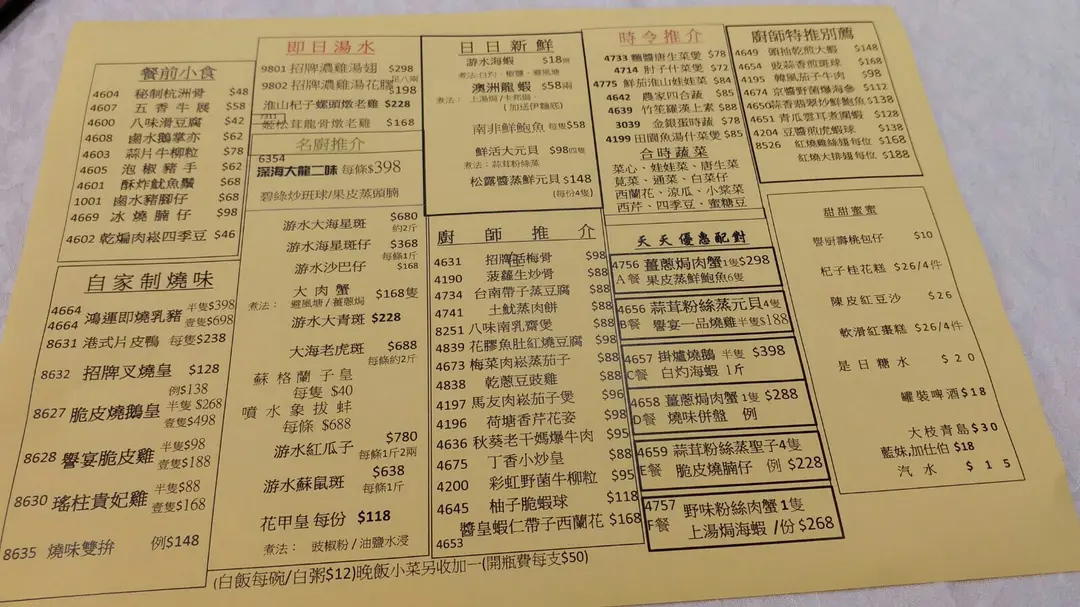 餐前小食
4604 秘制杭洲骨 $48
4607 五香牛展 $58
4600 八味滑豆腐 $42
4608 鹵水鵝掌亦 $62
4603 蒜片牛柳粒 $78
4605 泡椒豬手 $62
4601 酥炸魷魚鬚 $68
1001 鹵水豬腳仔 $68
4669 冰燒腩仔 $98
4602 乾煸肉崧四季豆 $46
自家制燒味
4664 鴻運即燒乳豬 半隻$398
4664 壹隻$698
8631 港式片皮鴨 每隻$238
8632 招牌叉燒皇 $128
例$138
8627 脆皮燒鵝皇 半隻 $268
壹隻$498
8628 譽宴脆皮雞 半隻$98
壹隻$188
8630 瑤柱貴妃雞 半隻$88
壹隻$168
8635 燒味雙拚 例$148
即日湯水
9801 招牌濃雞湯翅 $298
9802 招牌濃雞湯花膠 $198
淮山杞子螺頭燉老雞 $228
7311
姬松茸龍骨燉老雞 $168
名廚推介
6354
深海大龍二味 每條$398
碧綠炒斑球/果皮蒸頭腩
游水大海星斑 $680
約2斤
游水海星斑仔 $368
每條1斤
游水沙巴仔 $168
大肉蟹 $168隻
煮法: 避風塘/薑蔥焗
游水大青斑 $228
大海老虎斑 $688
每條約2斤
蘇格蘭子皇
每隻 $40
噴水象拔蚌
每條 $688
游水紅瓜子 $780
每條1斤2兩
游水蘇鼠斑 $638
每條1斤
花甲皇 每份 $118
煮法: 豉椒粉/油鹽水浸
日日新鮮
游水海蝦 $18兩
煮法:白灼、椒鹽、避風塘
澳洲龍蝦 $58兩
煮法: 上湯焗/牛邦焗、
(加送伊麵底)
南非鮮鮑魚 每隻$58
鮮活大元貝 $98四隻
煮法: 蒜茸粉絲蒸
松露醬蒸鮮元貝 $148
(每份4隻)
廚師推介
4631 招牌話梅骨 $98
4190 菠蘿生炒骨 $88
4734 台南帶子蒸豆腐 $88
4741 土魷蒸肉餅 $88
8251 八味南乳齋煲 $88
4839 花膠魚肚紅燒豆腐 $98
4673 梅菜肉崧蒸茄子 $88
4838 乾蔥豆豉雞 $88
4197 馬友肉崧茄子煲 $96
4196 荷塘香芹花姿 $98
4636 秋葵老干媽爆牛肉 $95
4675 丁香小炒皇 $88
4200 彩虹野菌牛柳粒 $95
4645 柚子脆蝦球 $118
醬皇蝦仁帶子西蘭花 $168
4653
時令推介
4733 麵醬唐生菜煲 $78
4714 肘子什菜煲 $72
4775 鮮茄淮山娃娃菜 $84
4642 農家四合蔬 $85
4639 竹笙羅漢上素 $88
3039 金銀蛋時蔬 $78
4199 田園魚湯什菜煲 $85
合時蔬菜
菜心、娃娃菜、唐生菜
莧菜、通菜、白菜仔
西蘭花、涼瓜、小棠菜
西芹、四季豆、蜜糖豆
天天優惠配對
4756 薑蔥焗肉蟹1隻$298
A餐 果皮蒸鮮鮑魚6隻
4656 蒜茸粉絲蒸元貝4隻
B餐 譽宴一品燒雞半隻$188
4657 掛爐燒鵝 半隻 $398
C餐 白灼海蝦 1斤
4658 薑蔥焗肉蟹1隻 $288
D餐 燒味併盤 例
4659 蒜茸粉絲蒸聖子4隻
E餐 脆皮燒腩仔 例 $228
4757 野味粉絲肉蟹1隻
F餐 上湯焗海蝦 /份$268
廚師特推別薦
4649 頭抽乾煎大蝦 $148
4654 豉蒜香煎斑球 $168
4195 韓風茄子牛肉 $98
4674 京醬野菌爆海參 $112
4650 蒜香翡翠炒鮮鮑魚 $138
4651 青瓜雲耳煮團蝦 $128
4204 豆醬煎虎蝦球 $138
8526 紅燒雞絲翅每位 $168
紅燒大排翅每位 $188
甜甜蜜蜜
譽廚壽桃包仔 $10
杞子桂花糕 $26/4件
陳皮紅豆沙 $26
軟滑紅棗糕 $26/4件
是日糖水 $20
罐裝啤酒 $18
大枝青島 $30
藍妹,加仕伯 $18
汽水 $15
(白飯每碗/白粥$12)晚飯小菜另收加一(開瓶費每支$50)